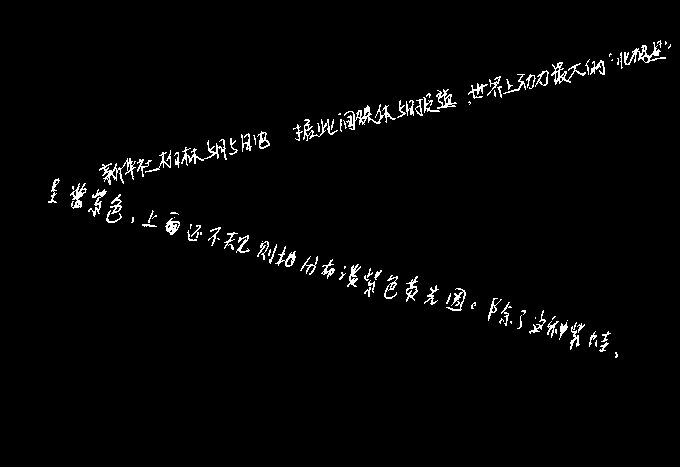 新华社柏林5月5日电 据此间媒体5日报道,世界上动力最大的“北极星”
是紫色,上面还不规则地分布淡紫色黄光圈。除了这种紫蛙,